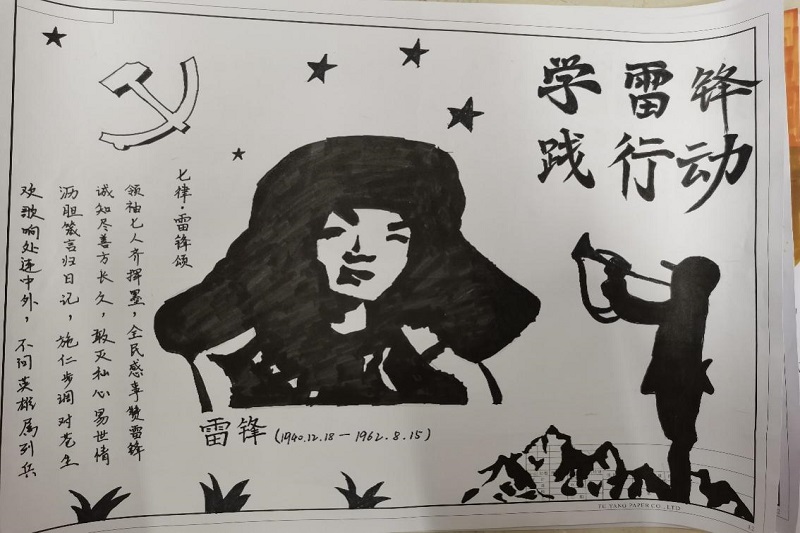 学雷锋
践行动
七律·雷锋颂
领袖七人齐挥墨，全民感事赞雷锋
诚知尽善方长久，敢灭私心易世情
沥胆箴言归日记，施仁步调对苍生
欢歌响处连中外，不问英雄属列兵
雷锋（1940.12.18－1962.8.15）
FU YANG PAPER CO.,LTD